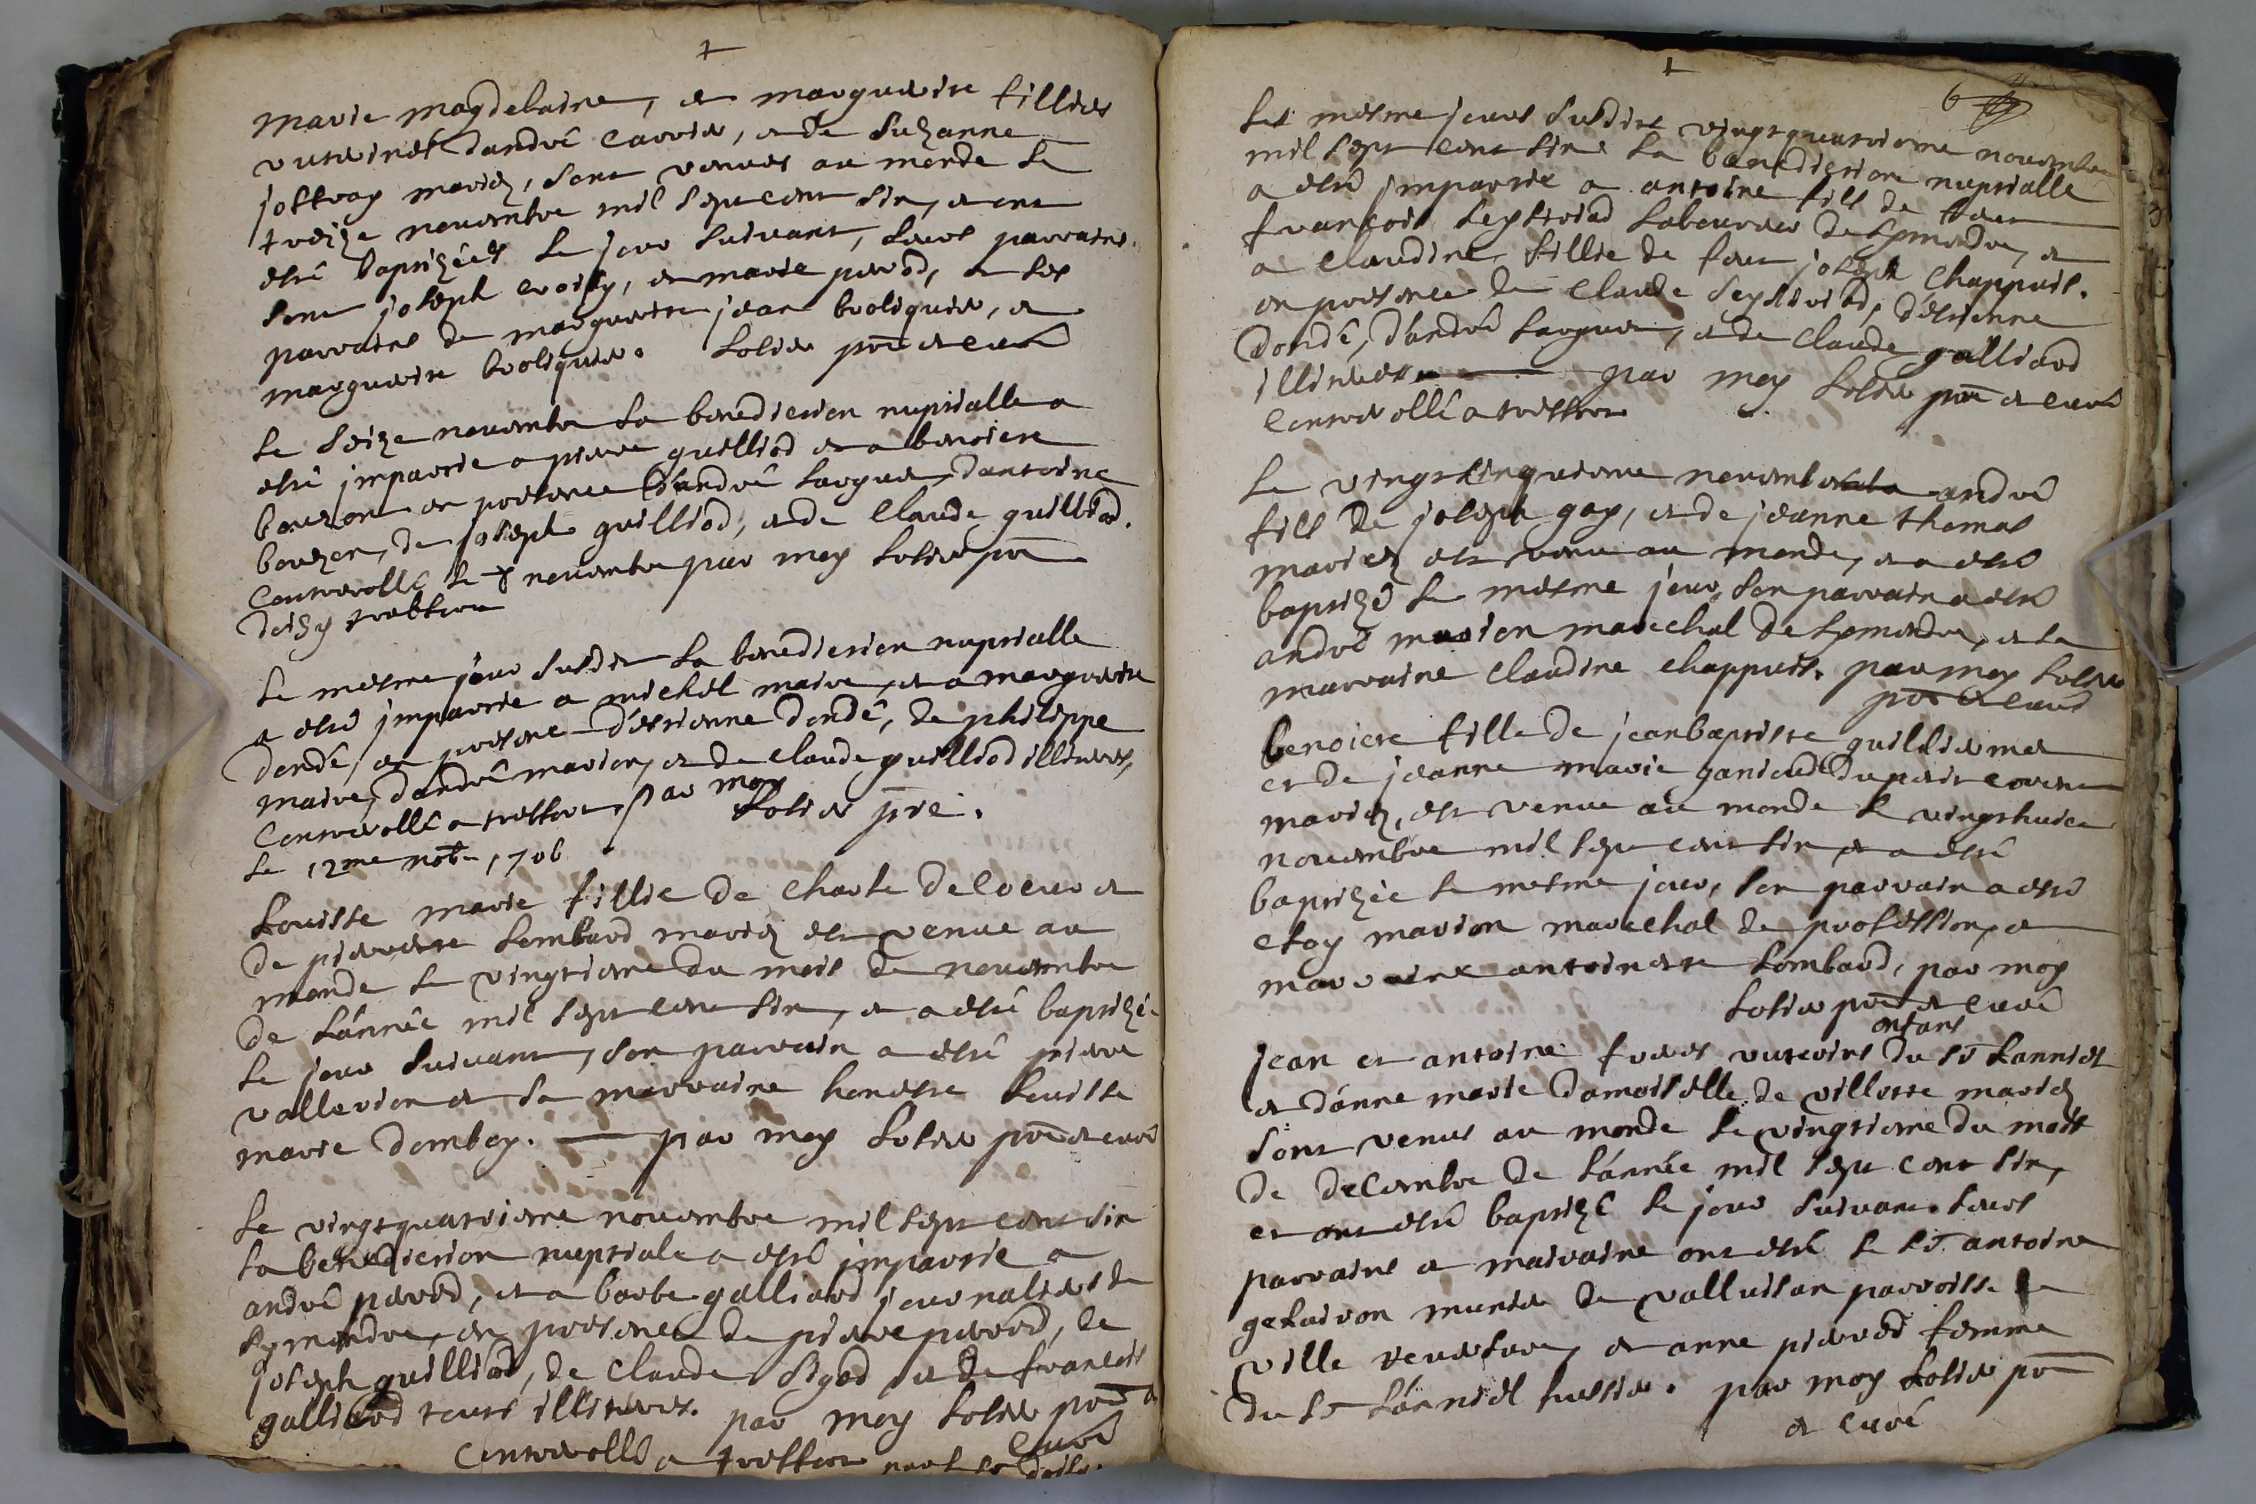 marie magdelaine, et marguerite fillies
uterines d'andré carrier, et de suzanne
joffray mariez, sont venues au monde le
treize novembre mil sept cent six, et ont
esté baptizées le jour suivant, leurs parrains
sont joseph croisy, et marie perrod, et les
parrains de marguerite jean broliquier, et
marguerite broliquier. Solier pre et curé
Le seize novembre la benediction nuptialle a
esté impartie a pierre guilliod et a benoiste
bouzon en presence d'andré larguer, d'antoine
bouzon, de joseph guilliod, et de Claude guilliod.
Controrollé le novembre par moy Solier pre
treffort
Le mesme jour susdit la benediction nuptialle
a esté impartie a michel maire, et a marguerite
dondé, en presence d'estienne dondé, de philippe
maire, d'andré marion, et de claude guilliod illiteres,
Controrollé a treffort par moy
Solier pre.
Le 12me nobre 1706
Louisse marie fillie de Charle delocur et
de pierrette Lombard mariez est venue au
monde le vingtieme du mois de novembre
de L'année mil sept cent six, et a esté baptizée
le jour suivant, son parrain a esté pierre
vallerion et sa marraine honeste Louisse
marie dombey. par moy Solier pre et curé
Le vingtquatrieme novembre mil sept cent six
la benediction nuptiale a esté impartie a
andré perrod, et a barbe galliard journaliers de
symandre, en presence de pierre perrod, de
joseph guilliod, de Claude sigod et de francois
galliard tous illiteres. par moy Solier pre et
curé
Controrollé a treffort
6
Les mesme jours susdits vingtquatrieme novembre
mil sept cent six la benediction nuptialle
a esté impartie a antoine fils de feu
francois seystiriad laboureur de symandre, et
a claudine fillie de feu joseph Chappuis.
en presence de Claude seystiriad, d'estienne
dondé, d'andré larguer, et de claude galliard
illiteres par moy Solier pre et curé
Controrollé a treffort
Le vingtcinquieme novembre andré
fils de joseph gay, et de jeanne thomas
mariez est venu au monde, et a esté
baptizé le mesme jour, son parrain a esté
andré marion marechal de symandre, et la
marraine claudine chappuis. par moy Solier
pre et curé
benoiste fille de jeanbaptiste guilliermet
et de jeanne marie ganioud du petit corent
mariez, est venue au monde le vingthuict
novembre mil sept cent six et a esté
baptizée le mesme jour, son parrain a esté
eloy marion marechal de profession, et
marraine antoinette Lombard, par moy
Solier pre et curé
enfans
jean et antoine freres uterins du sr Lanniel
et d'anne marie damoiselle de villette mariez
sont venus au monde le vingtieme du mois
de decembre de L'année mil sept cent six,
et ont esté baptizé le jour suivant. Leurs
parrains et mairaine ont esté le sr antoine
gelairon munier de valluisan parroisse de
ville reversure, et anne pierrod femme
du sr Lanniel hussier. par moy Solier pre
et curé